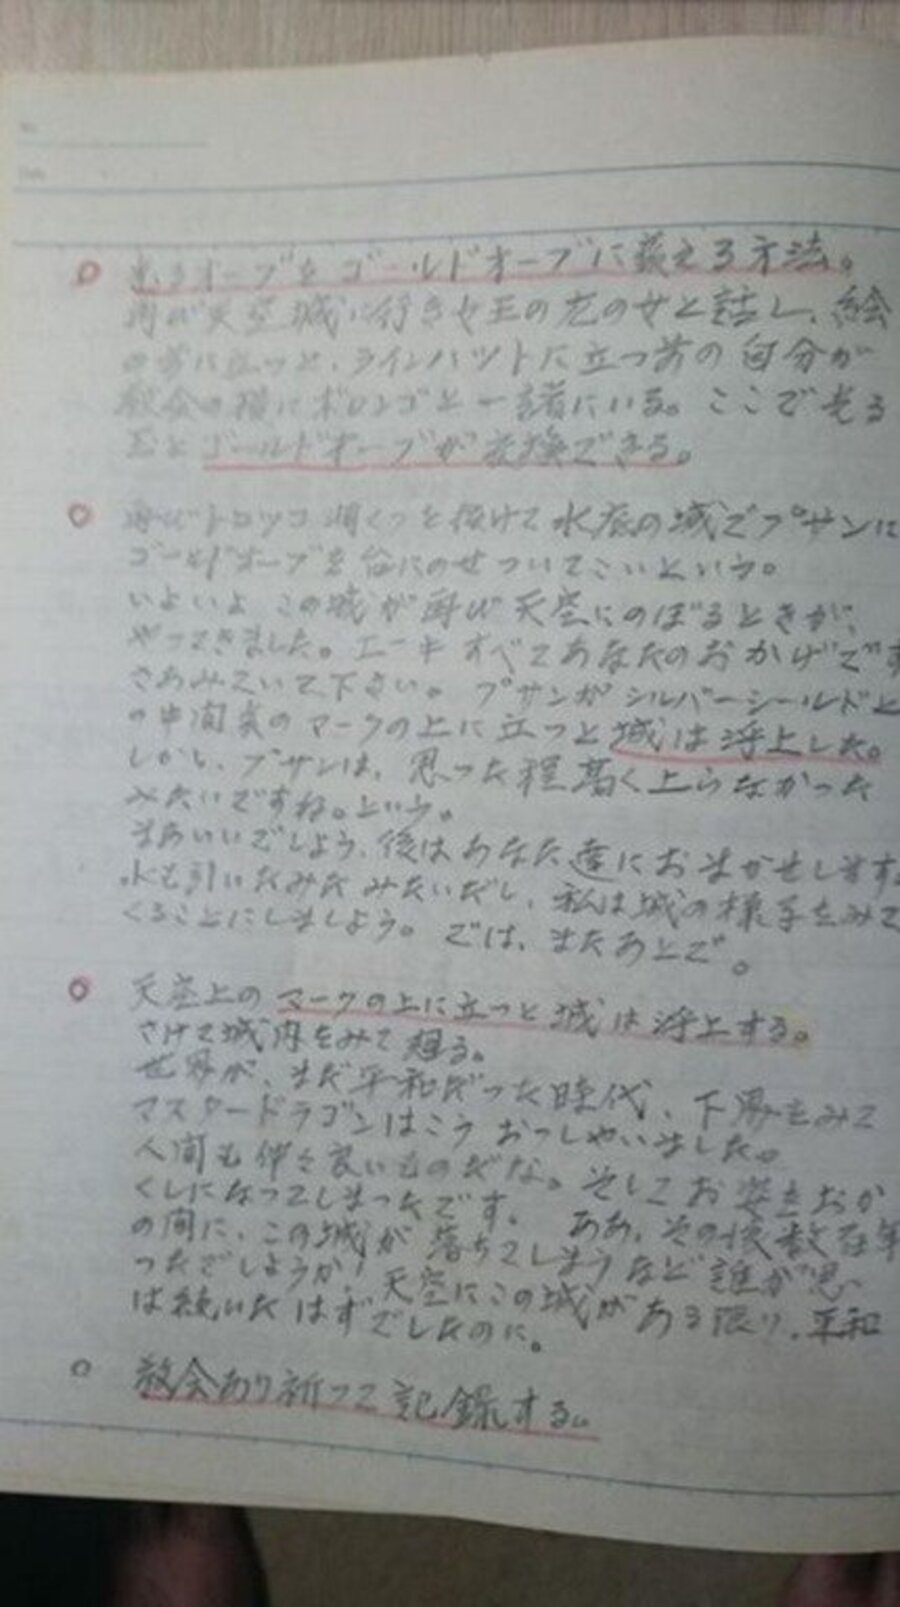 光るオーブをゴールドオーブに変える方法。
再び天空城に行き女王の左の女と話し、絵
の前に立つと、ラインハットに立つ前の自分が
教会の横にボロンゴと一諸にいる。ここで光る
玉とゴールドオーブが交換できる。
再びトロッコ洞くつを抜けて水底の城でプサンに
ゴールドオーブを台にのせついてこいという。
いよいよこの城が再び天空にのぼるときが、
やってきました。すべてあなたのおかげです
さあみていて下さい。プサンがシルバーシールドと
の中間点のマークの上に立つと城は浮上した。
しかし、プサンは、思った程高く上らなかった
みたいですね。という。
まあいいでしよう、後はあなた達におまかせします。
水も引いたみたいだし、私は城の様子をみて
くることにしましよう。では、またあとで。
天空上のマークの上に立つと城は浮上する。
さけて城内をみて廻る。
世界が、まだ平和だった時代、下界をみて
マスタードラゴンはこうおっしやいました。
人間も仲々良いものだな。そしてお姿をおか
くしになってしまったです。ああ、その後数百年
の間に、この城が落ちてしまうなど誰が思
ったでしようか!天空にこの城がある限り、平和
は続いたはずでしたのに。
教会あり祈って記録する。